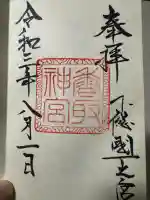 奉拝
下総国一之宮
香取神宮
令和二年八月一日